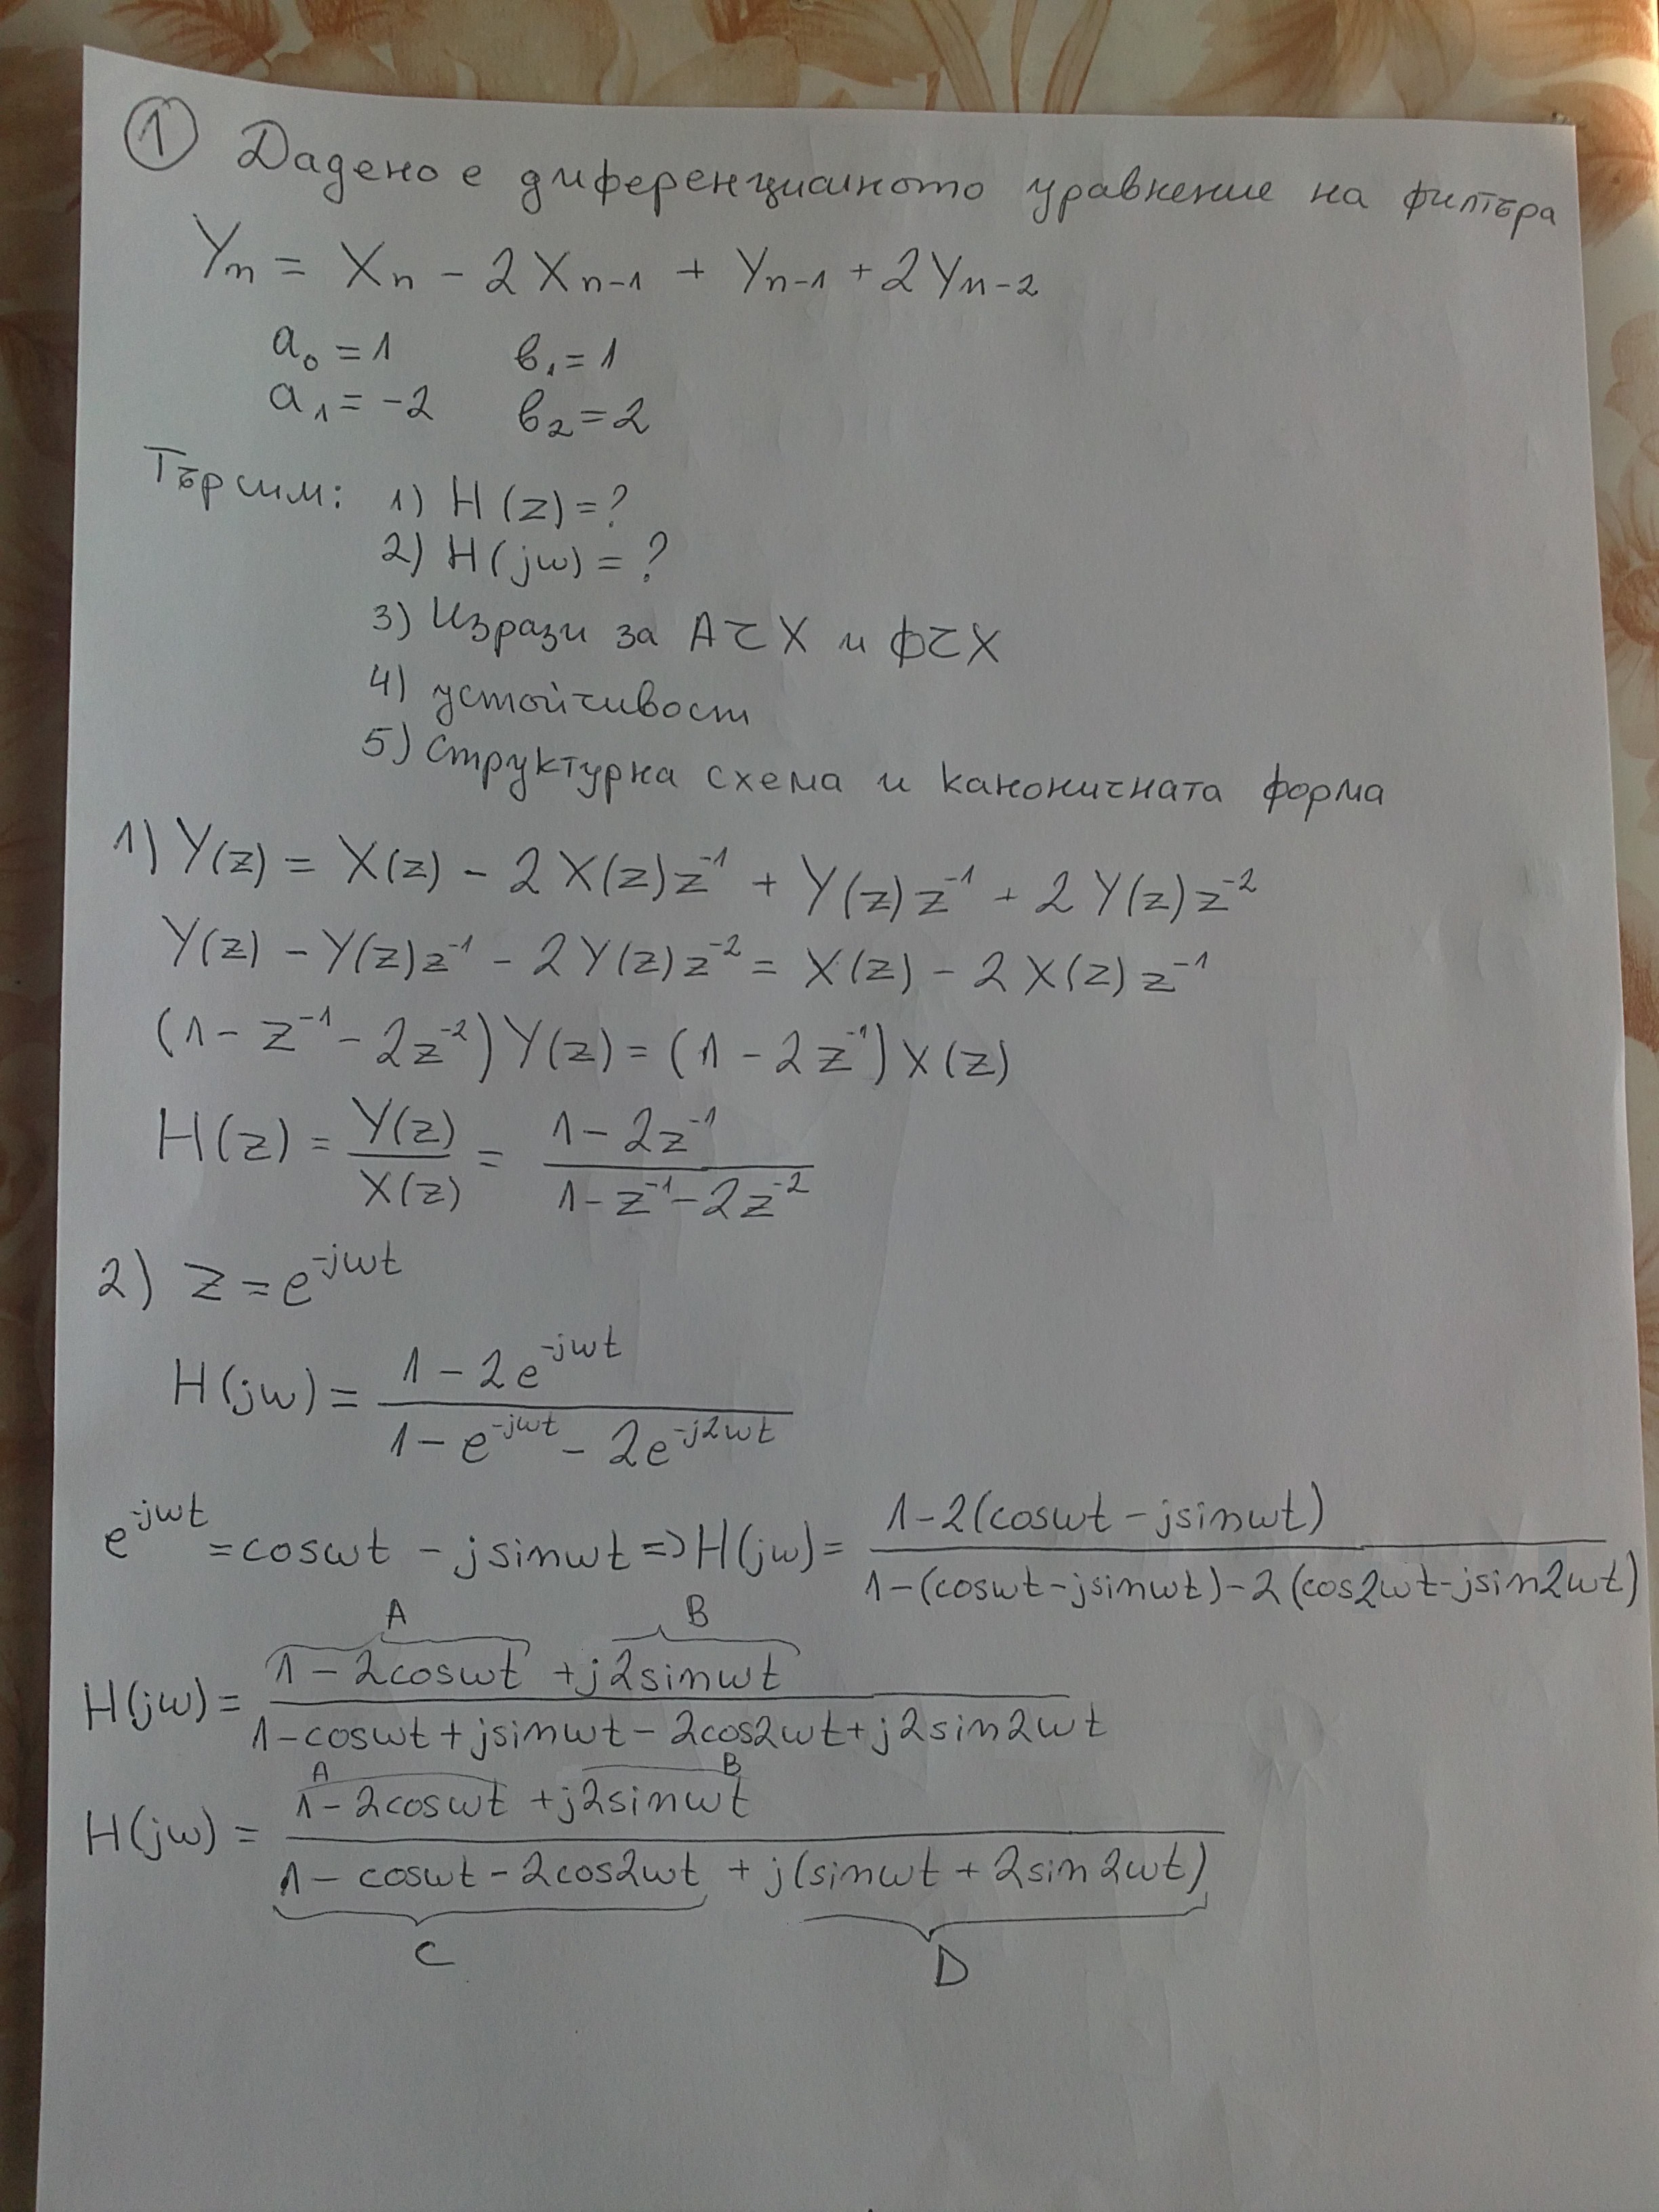 ① Дадено е диференциалното уравнение на филтъра
Yn = Xn - 2Xn-1 + Yn-1 + 2Yn-2
a0 = 1 b1 = 1
a1 = -2 b2 = 2
Търсим: 1) H(z) = ?
2) H(jω) = ?
3) Изрази за АЧХ и ФЧХ
4) устойчивост
5) Структурна схема и каноничната форма
1) Y(z) = X(z) - 2X(z)z^-1 + Y(z)z^-1 + 2Y(z)z^-2
Y(z) - Y(z)z^-1 - 2Y(z)z^-2 = X(z) - 2X(z)z^-1
(1 - z^-1 - 2z^-2)Y(z) = (1 - 2z^-1)X(z)
H(z) = Y(z)/X(z) = (1 - 2z^-1)/(1 - z^-1 - 2z^-2)
2) z = e^-jωt
H(jω) = (1 - 2e^-jωt)/(1 - e^-jωt - 2e^-j2ωt)
e^-jωt = cosωt - jsinωt => H(jω) = (1 - 2(cosωt - jsinωt))/(1 - (cosωt - jsinωt) - 2(cos2ωt - jsin2ωt))
A B
H(jω) = (1 - 2cosωt + j2sinωt)/(1 - cosωt + jsinωt - 2cos2ωt + j2sin2ωt)
A B
H(jω) = (1 - 2cosωt + j2sinωt)/(1 - cosωt - 2cos2ωt + j(sinωt + 2sin2ωt))
C D